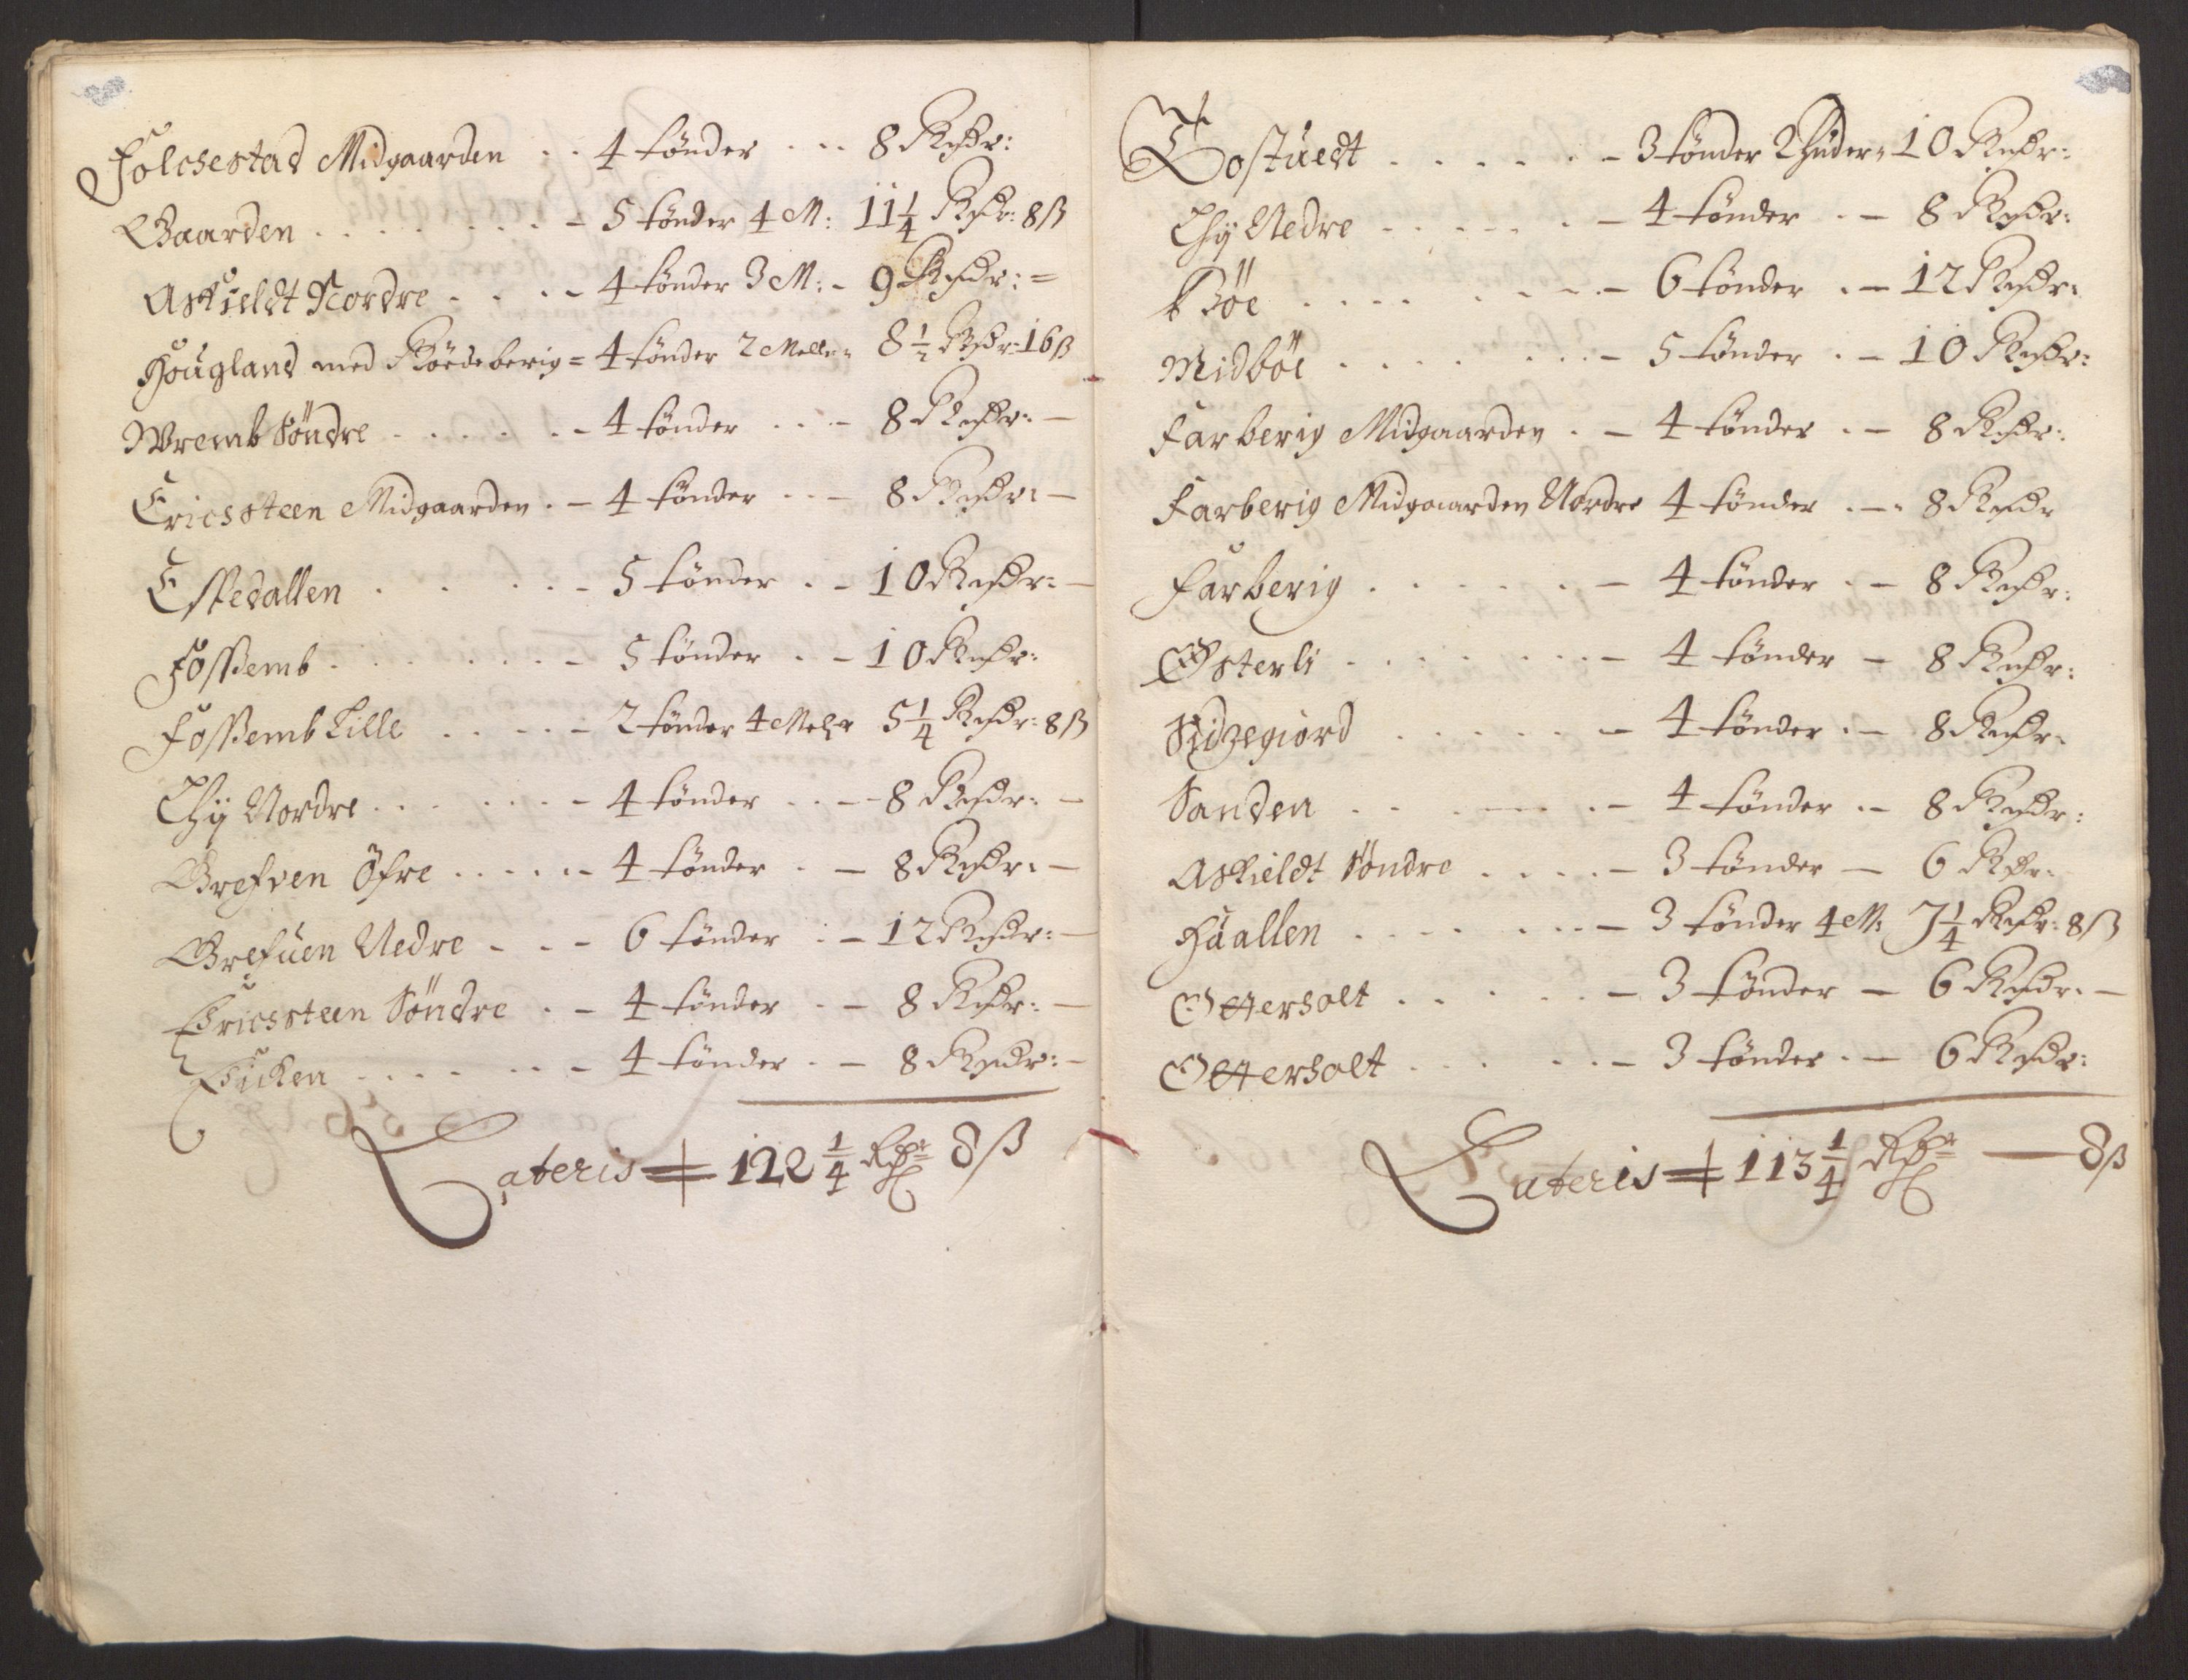 Folchestad Midgaarden . . 4 tønder . . . 8 Rixdr:
Gaarden . . . . . . . - 5 tønder 4 M: 11 1/4 Rixdr: 8 ß
Askieldt Nordre . . . - 4 tønder 3 M: - 9 Rixdr: =
Hougland med Röedeberig = 4 tønder 2 Meller 8 1/2 Rixdr: 16 ß
Wremb Söndre . . . . . - 4 tønder . . . - 8 Rixdr: -
Ericssteen Midgaarden . - 4 tønder . . - 8 Rixdr: -
Espedallen . . . . . - 5 tønder . - 10 Rixdr: -
Fossemb . . . . . . . - 5 tønder . - 10 Rixdr:
Fossemb Lille . . . . - 2 tønder 4 Melr 5 1/4 Rixdr: 8 ß
Thÿ Nordre . . . . . . - 4 tønder . . - 8 Rixdr: -
Grefven Öfre . . . . . - 4 tønder . - 8 Rixdr: -
Grefuen Nedre - . . - 6 tønder . - 12 Rixdr: -
Ericssteen Söndre . - 4 tønder . - 8 Rixdr: -
Eicken . . . . . . - 4 tønder . - 8 Rixdr: -
Lateris = 122 1/4 Rdr 8 ß
Tostuedt . . . . . . - 3 tønder 2 Huder = 10 Rixdr:
Thÿ Nedre . . . . . . - 4 tønder . - 8 Rixdr:
Böe . . . . . . . . - 6 tønder . - 12 Rixdr:
Midböe . . . . . . . - 5 tønder . - 10 Rixdr:
Farberig Midgaarden . - 4 tønder . - 8 Rixdr:
Farberig Midgaarden Nordre 4 tønder . - . 8 Rixdr
Farberig . . . . . . - 4 tønder . - 8 Rixdr:
Østerli . . . . . . . - 4 tønder - 8 Rixdr:
Sidzegiord . . . . . - 4 tønder . - 8 Rixdr:
Sanden . . . . . . - 4 tønder . - 8 Rixdr:
Askieldt Söndre . . . . - 3 tønder - 6 Rdr:
Huallen . . . . . . . - 3 tønder 4 M: 7 1/4 Rixdr: 8 ß
Otterholt . . . . . - 3 tønder - 6 Rixdr: -
Otterholt . . . . . - 3 tønder . - 6 Rixdr:
Lateris = 113 1/4 Rdr — 8 ß